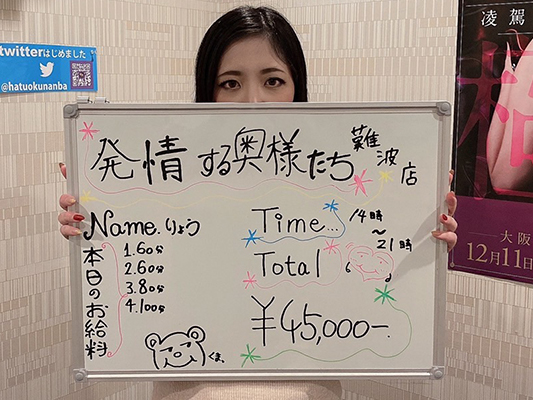 twitterはじめました
@hatuokunanba
発情する奥様たち 難波店
Name.りょう
本日のお給料
1.60分
2.60分
3.80分
4.100分
Time...
14時
~
21時
Total
¥45,000-.
くま、
凌駕
大阪
12月11日